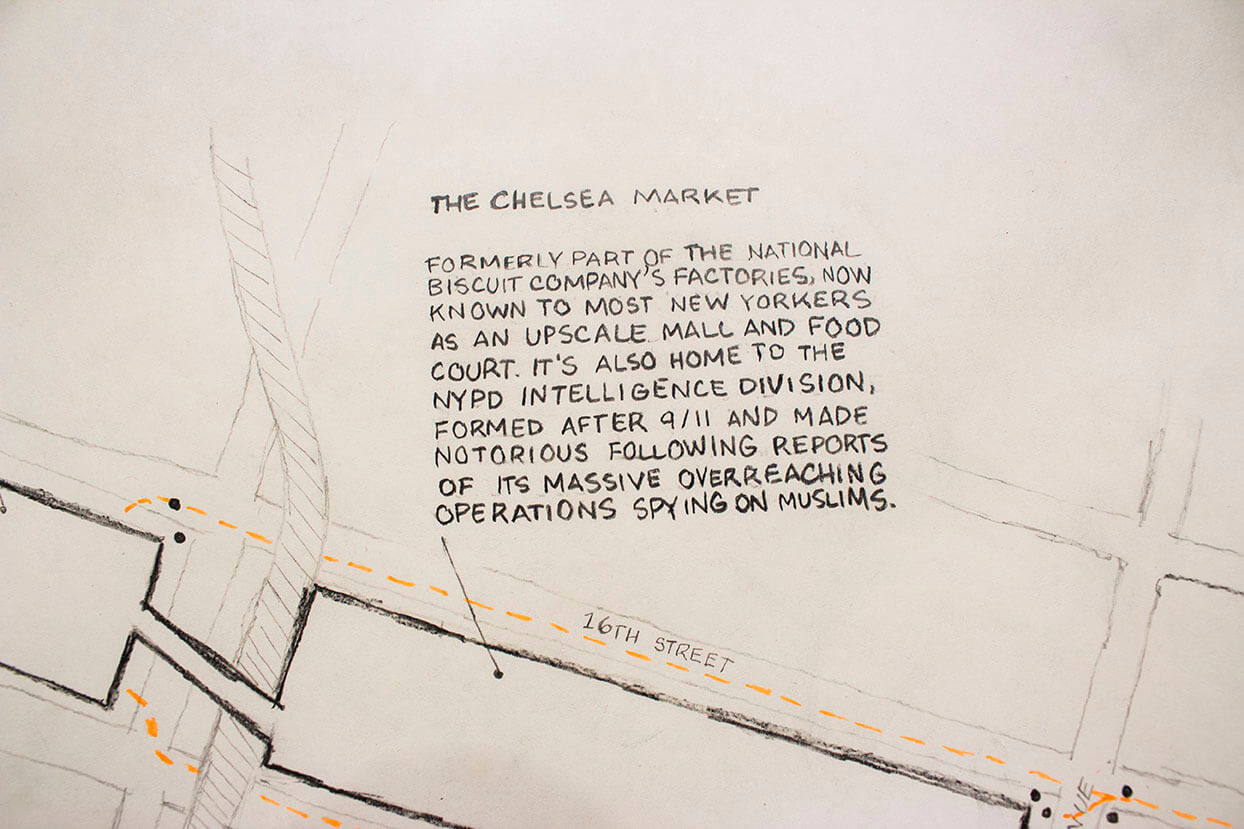 THE CHELSEA MARKET
FORMERLY PART OF THE NATIONAL
BISCUIT COMPANY'S FACTORIES, NOW
KNOWN TO MOST NEW YORKERS
AS AN UPSCALE MALL AND FOOD
COURT. IT'S ALSO HOME TO THE
NYPD INTELLIGENCE DIVISION,
FORMED AFTER 9/11 AND MADE
NOTORIOUS FOLLOWING REPORTS
OF ITS MASSIVE OVERREACHING
OPERATIONS SPYING ON MUSLIMS.
16TH STREET